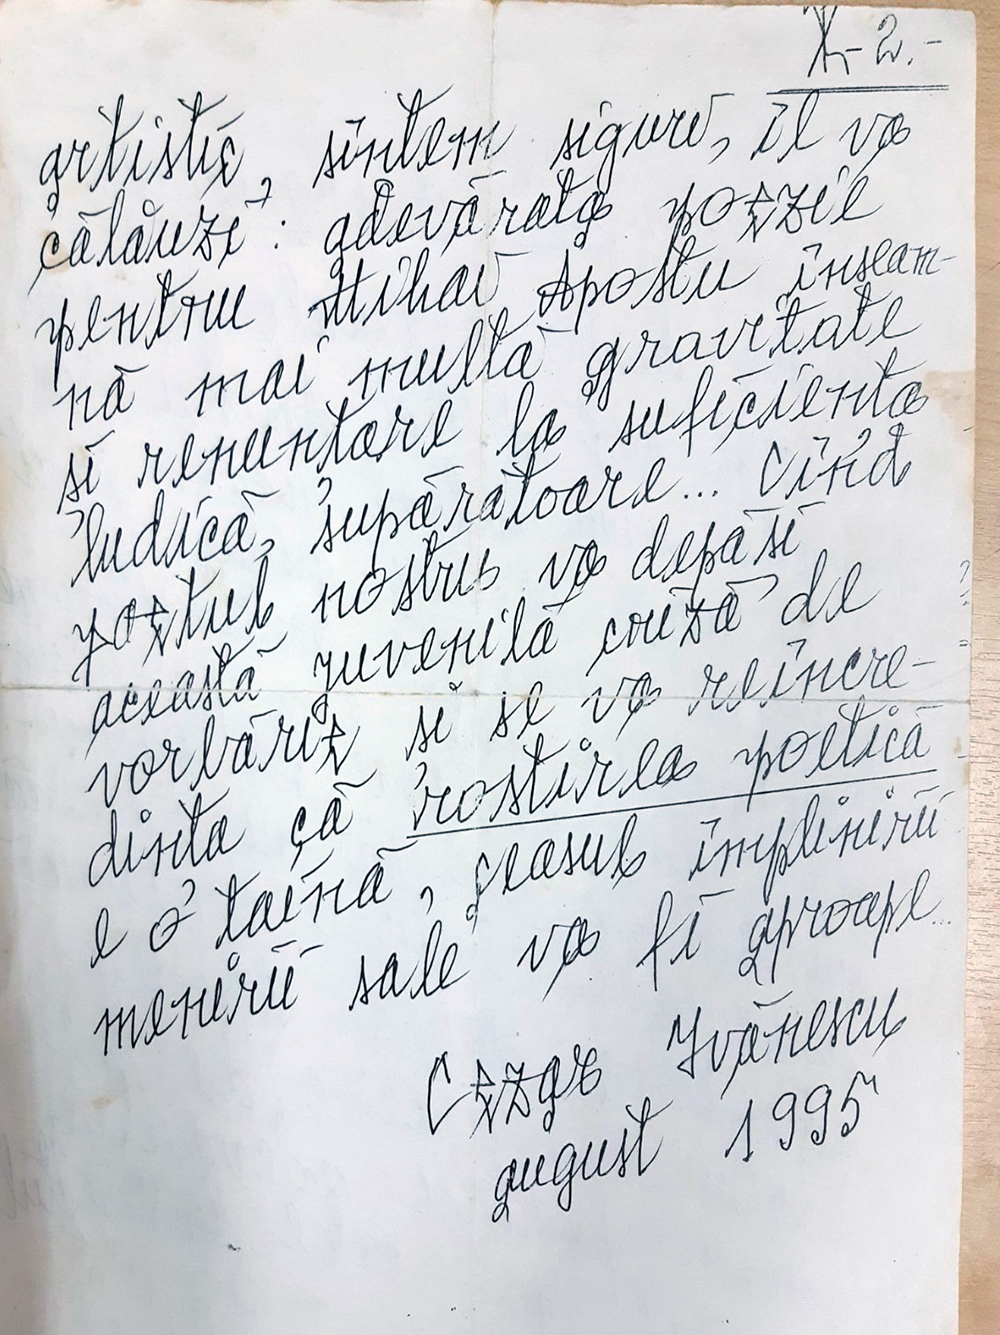 X-2.-
artistic, sîntem siguri, îl va
călăuzi: adevărata poezie
pentru Mihai Apostu înseam-
nă mai multă gravitate
și renunțare la suficiența
ludică, supărătoare... Cînd
poetul nostru va depăși
această juvenilă criză de
vorbărie și se va reîncre-
dința că rostirea poetică
e o taină, ceasul împlinirii
menirii sale va fi aproape...
Cezar Ivănescu
august 1995